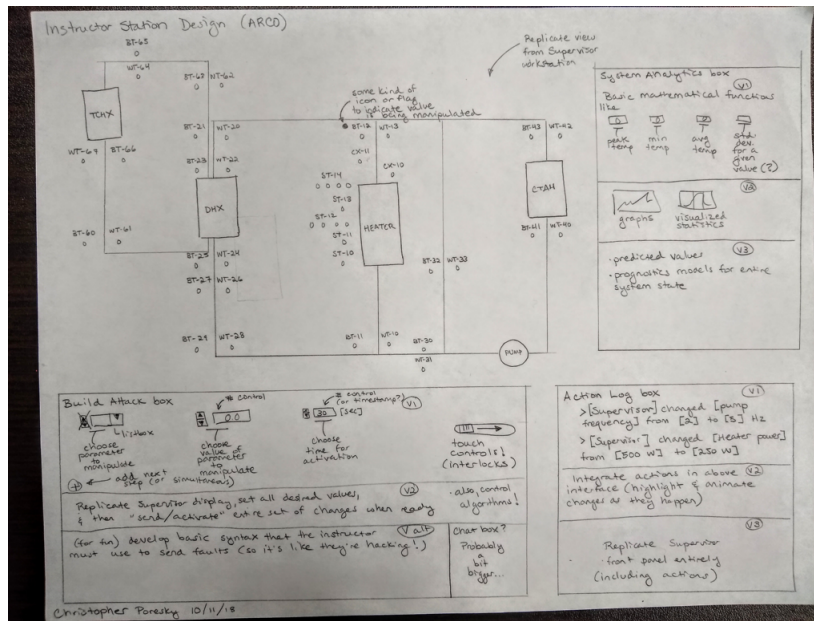 Instructor Station Design (ARCO)
BT-65
WT-64
BT-63
WT-62
TCHX
WT-67
BT-66
BT-21
WT-20
BT-23
WT-22
DHX
BT-60
WT-61
BT-25
WT-24
BT-27
WT-26
BT-29
WT-28
some kind of
icon or flag
to indicate value
is being manipulated
BT-12
WT-13
CX-11
CX-10
ST-14
ST-13
ST-12
ST-11
ST-10
HEATER
BT-11
WT-10
BT-32
WT-33
BT-30
WT-31
PUMP
BT-43
WT-42
CTAH
BT-41
WT-40
Replicate view
from Supervisor
workstation
System Analytics box
V1
Basic mathematical functions
like
peak
temp
min
temp
avg
temp
std.
dev.
for a
given
value (?)
V2
graphs
visualized
statistics
V3
· predicted values
· prognostics models for entire
system state
Build Attack box
V1
listbox
choose
parameter
to
manipulate
# control
0.0
choose
value of
parameter
to
manipulate
# control
(or timestamp?)
30 [sec]
choose
time for
activation
touch
controls!
(interlocks)
+ add next
step (or simultaneous)
V2
Replicate Supervisor display, set all desired values,
& then "send/activate" entire set of changes when ready
· also, control
algorithms!
V alt
(for fun) develop basic syntax that the instructor
must use to send faults (so it's like they're hacking!)
Chat box?
Probably
a
bit
bigger...
Action Log box
V1
> [Supervisor] changed [pump
frequency] from [2] to [3] Hz
> [Supervisor] changed [Heater power]
from [500 W] to [250 W]
V2
Integrate actions in above
interface (highlight & animate
changes as they happen)
V3
Replicate Supervisor
front panel entirely
(including actions)
Christopher Poresky 10/11/18